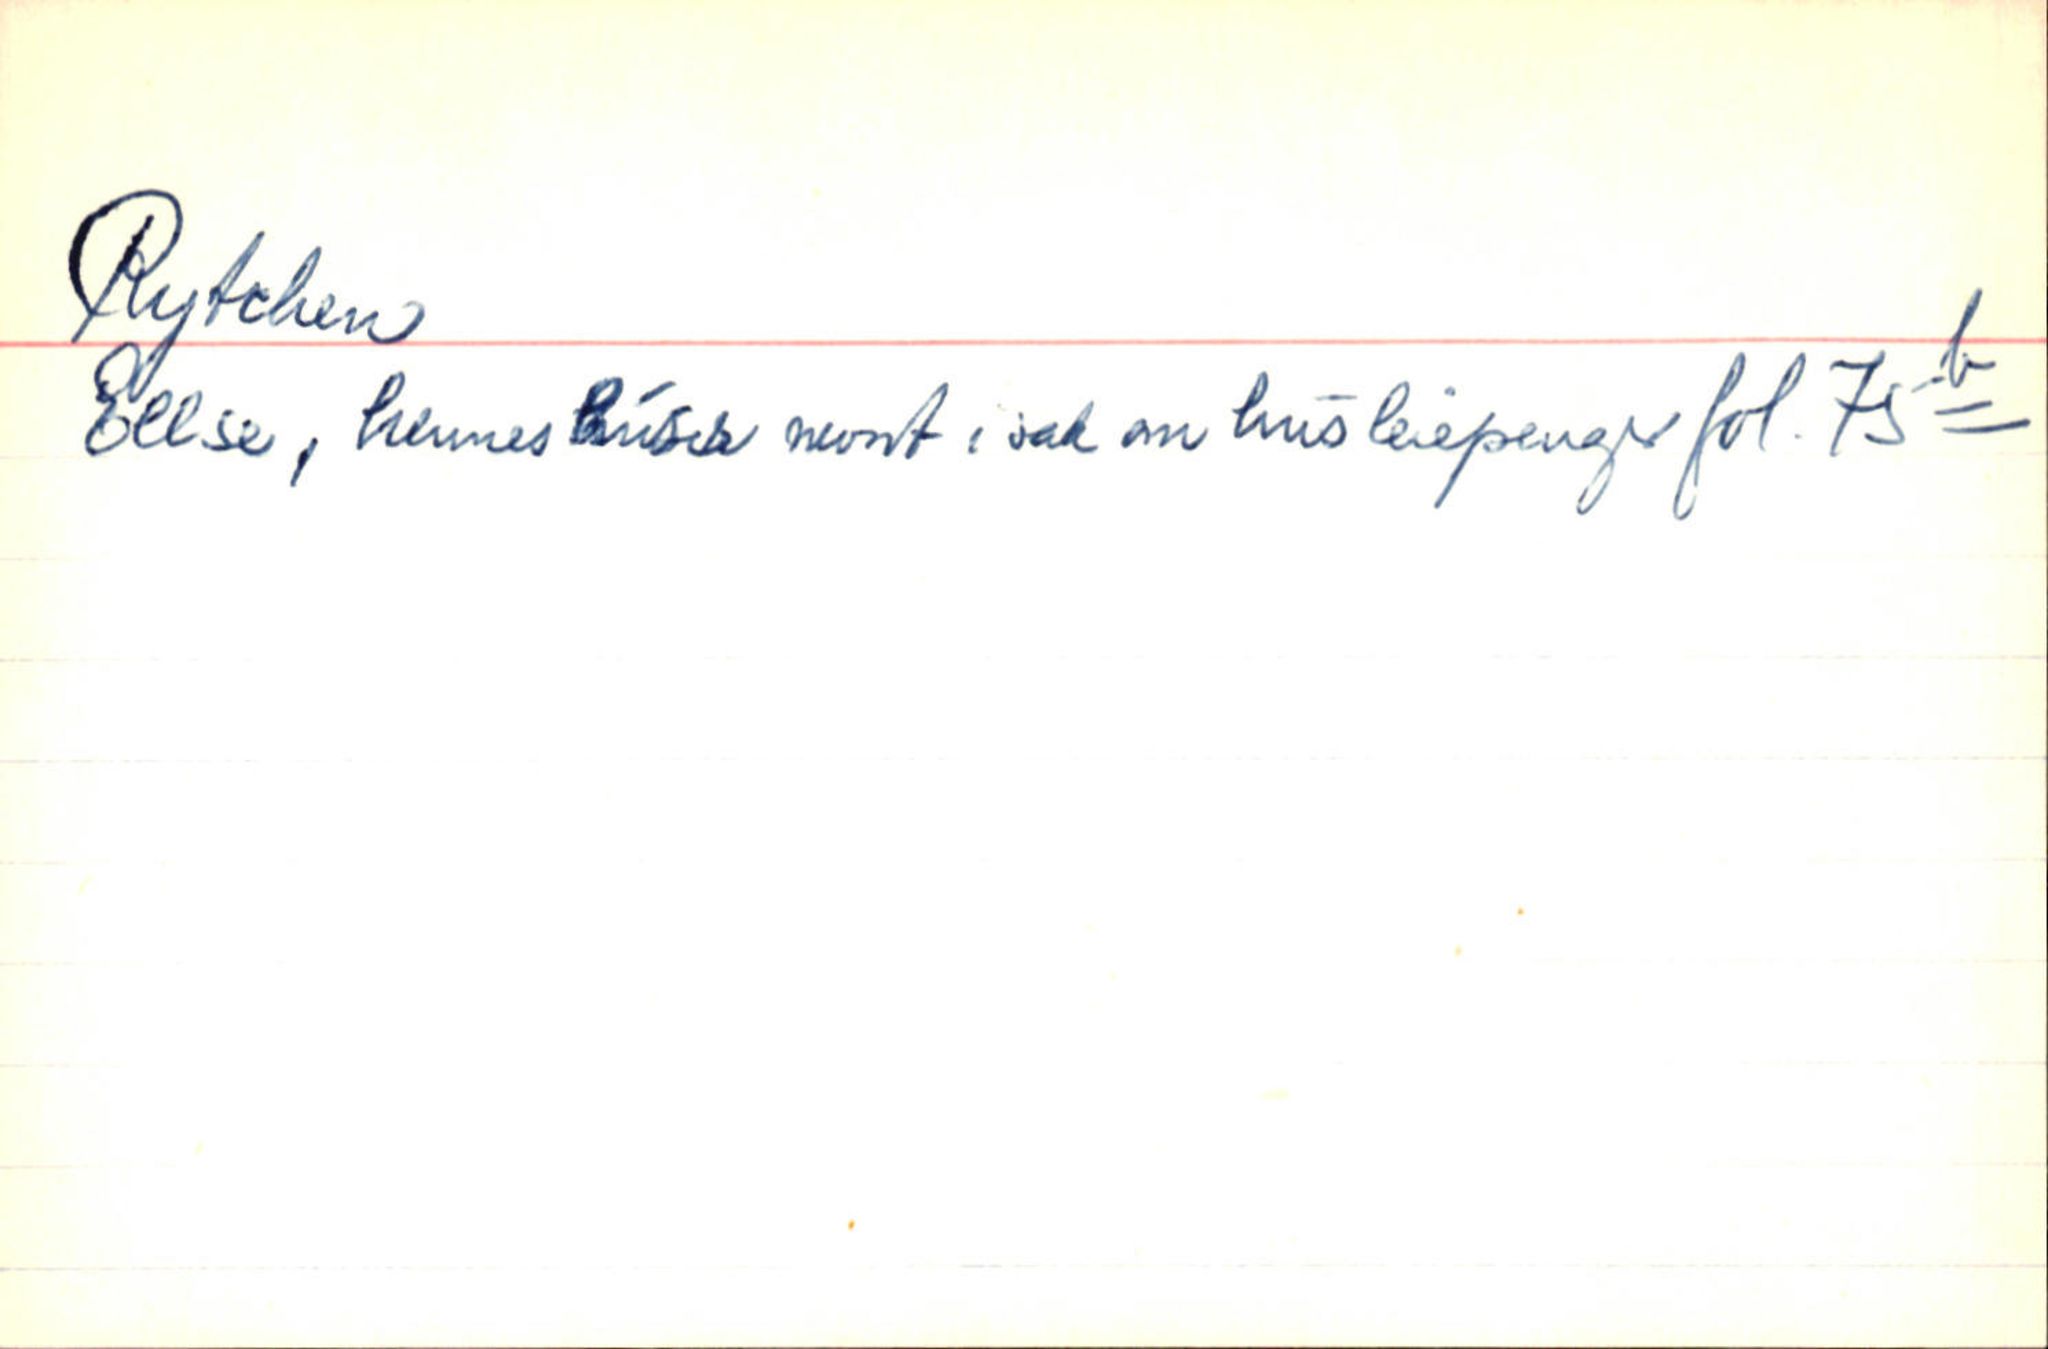 Rytchen
Ellse, hennes huser nevnt i sak om husleiepenger fol. 75 b